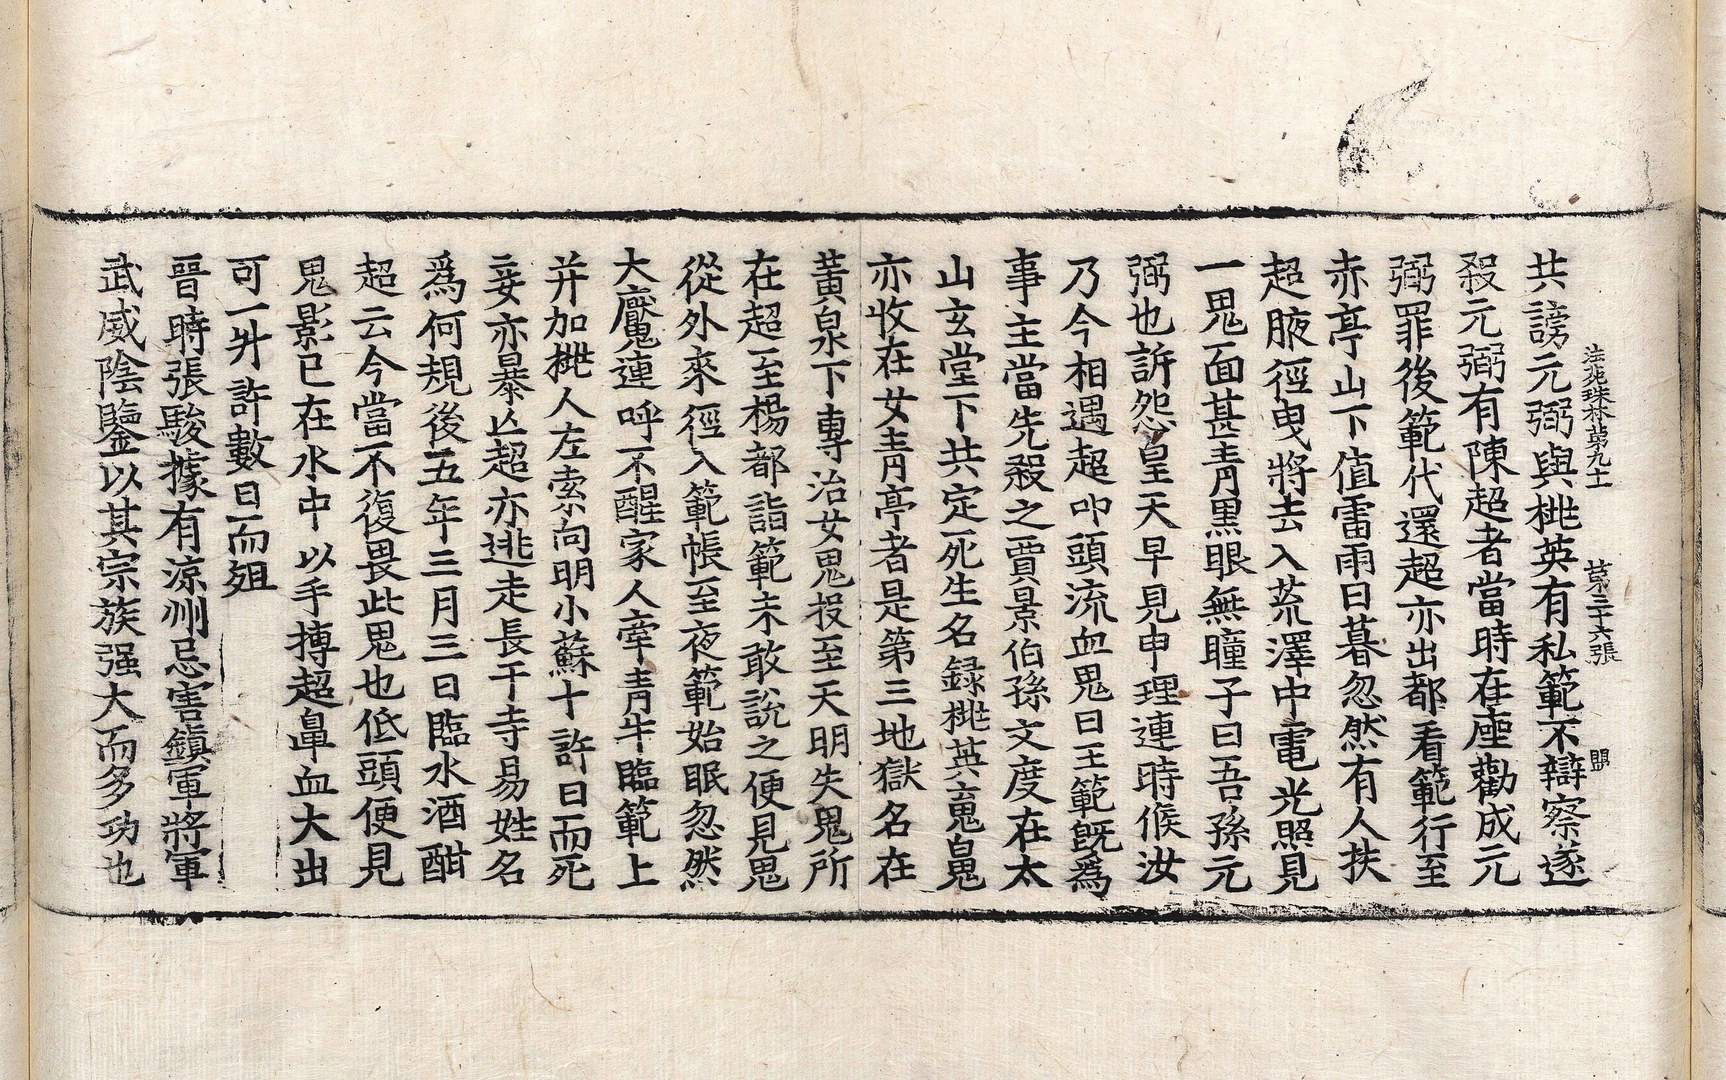 法苑珠林第九十一 第三十六張 盟
共謗元弼與桃英有私範不辯察遂
殺元弼有陳超者當時在座勸成元
弼罪後範代還超亦出都看範行至
赤亭山下值雷雨日暮忽然有人扶
超腋徑曳將去入荒澤中電光照見
一鬼面甚青黑眼無瞳子曰吾孫元
弼也訴怨皇天早見申理連時候汝
乃今相遇超叩頭流血鬼曰王範既為
事主當先殺之賈景伯孫文度在太
山玄堂下共定死生名録桃英䰟鬼
亦收在女青亭者是第三地獄名在
黃泉下專治女鬼投至天明失鬼所
在超至楊都詣範未敢說之便見鬼
從外來徑入範帳至夜範始眠忽然
大魘連呼不醒家人牽青牛臨範上
并加桃人左索向明小蘇十許日而死
妾亦暴亾超亦逃走長干寺易姓名
為何規後五年三月三日臨水酒酣
超云今當不復畏此鬼也低頭便見
鬼影已在水中以手搏超鼻血大出
可一升許數日而殂
晉時張駿據有涼州忌害鎮軍將軍
武威陰鑒以其宗族强大而多功也